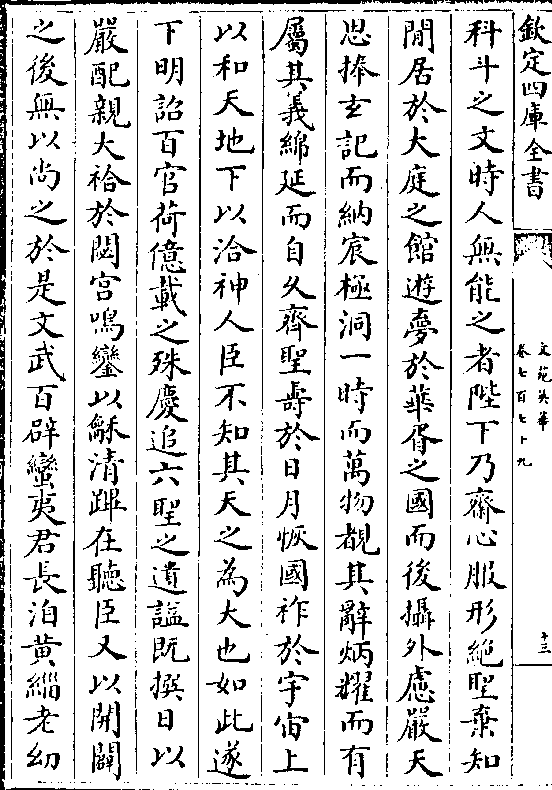 欽定四庫全書
文苑英華
卷七百七十九
十三
科斗之文時人無能之者陛下乃齋心服形絶聖棄知
閒居於大庭之館遊夣於華胥之國而後攝外慮嚴天
思捧玄記而納宸極洞一時而萬物覩其辭炳耀而有
屬其義綿延而自久齊聖壽於日月恢國祚於宇宙上
以和天地下以洽神人臣不知其天之為大也如此遂
下明詔百官荷億載之殊慶追六聖之遺謚既撰日以
嚴配親大祫於閟宫鳴鑾以龢清蹕在聽臣又以開闢
之後無以尚之於是文武百辟蠻夷君長洎黄緇老幼